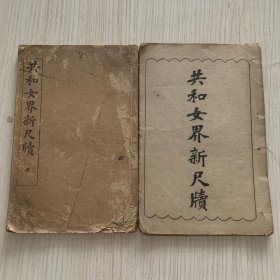 共和女界新尺牘
共和女界新尺牘